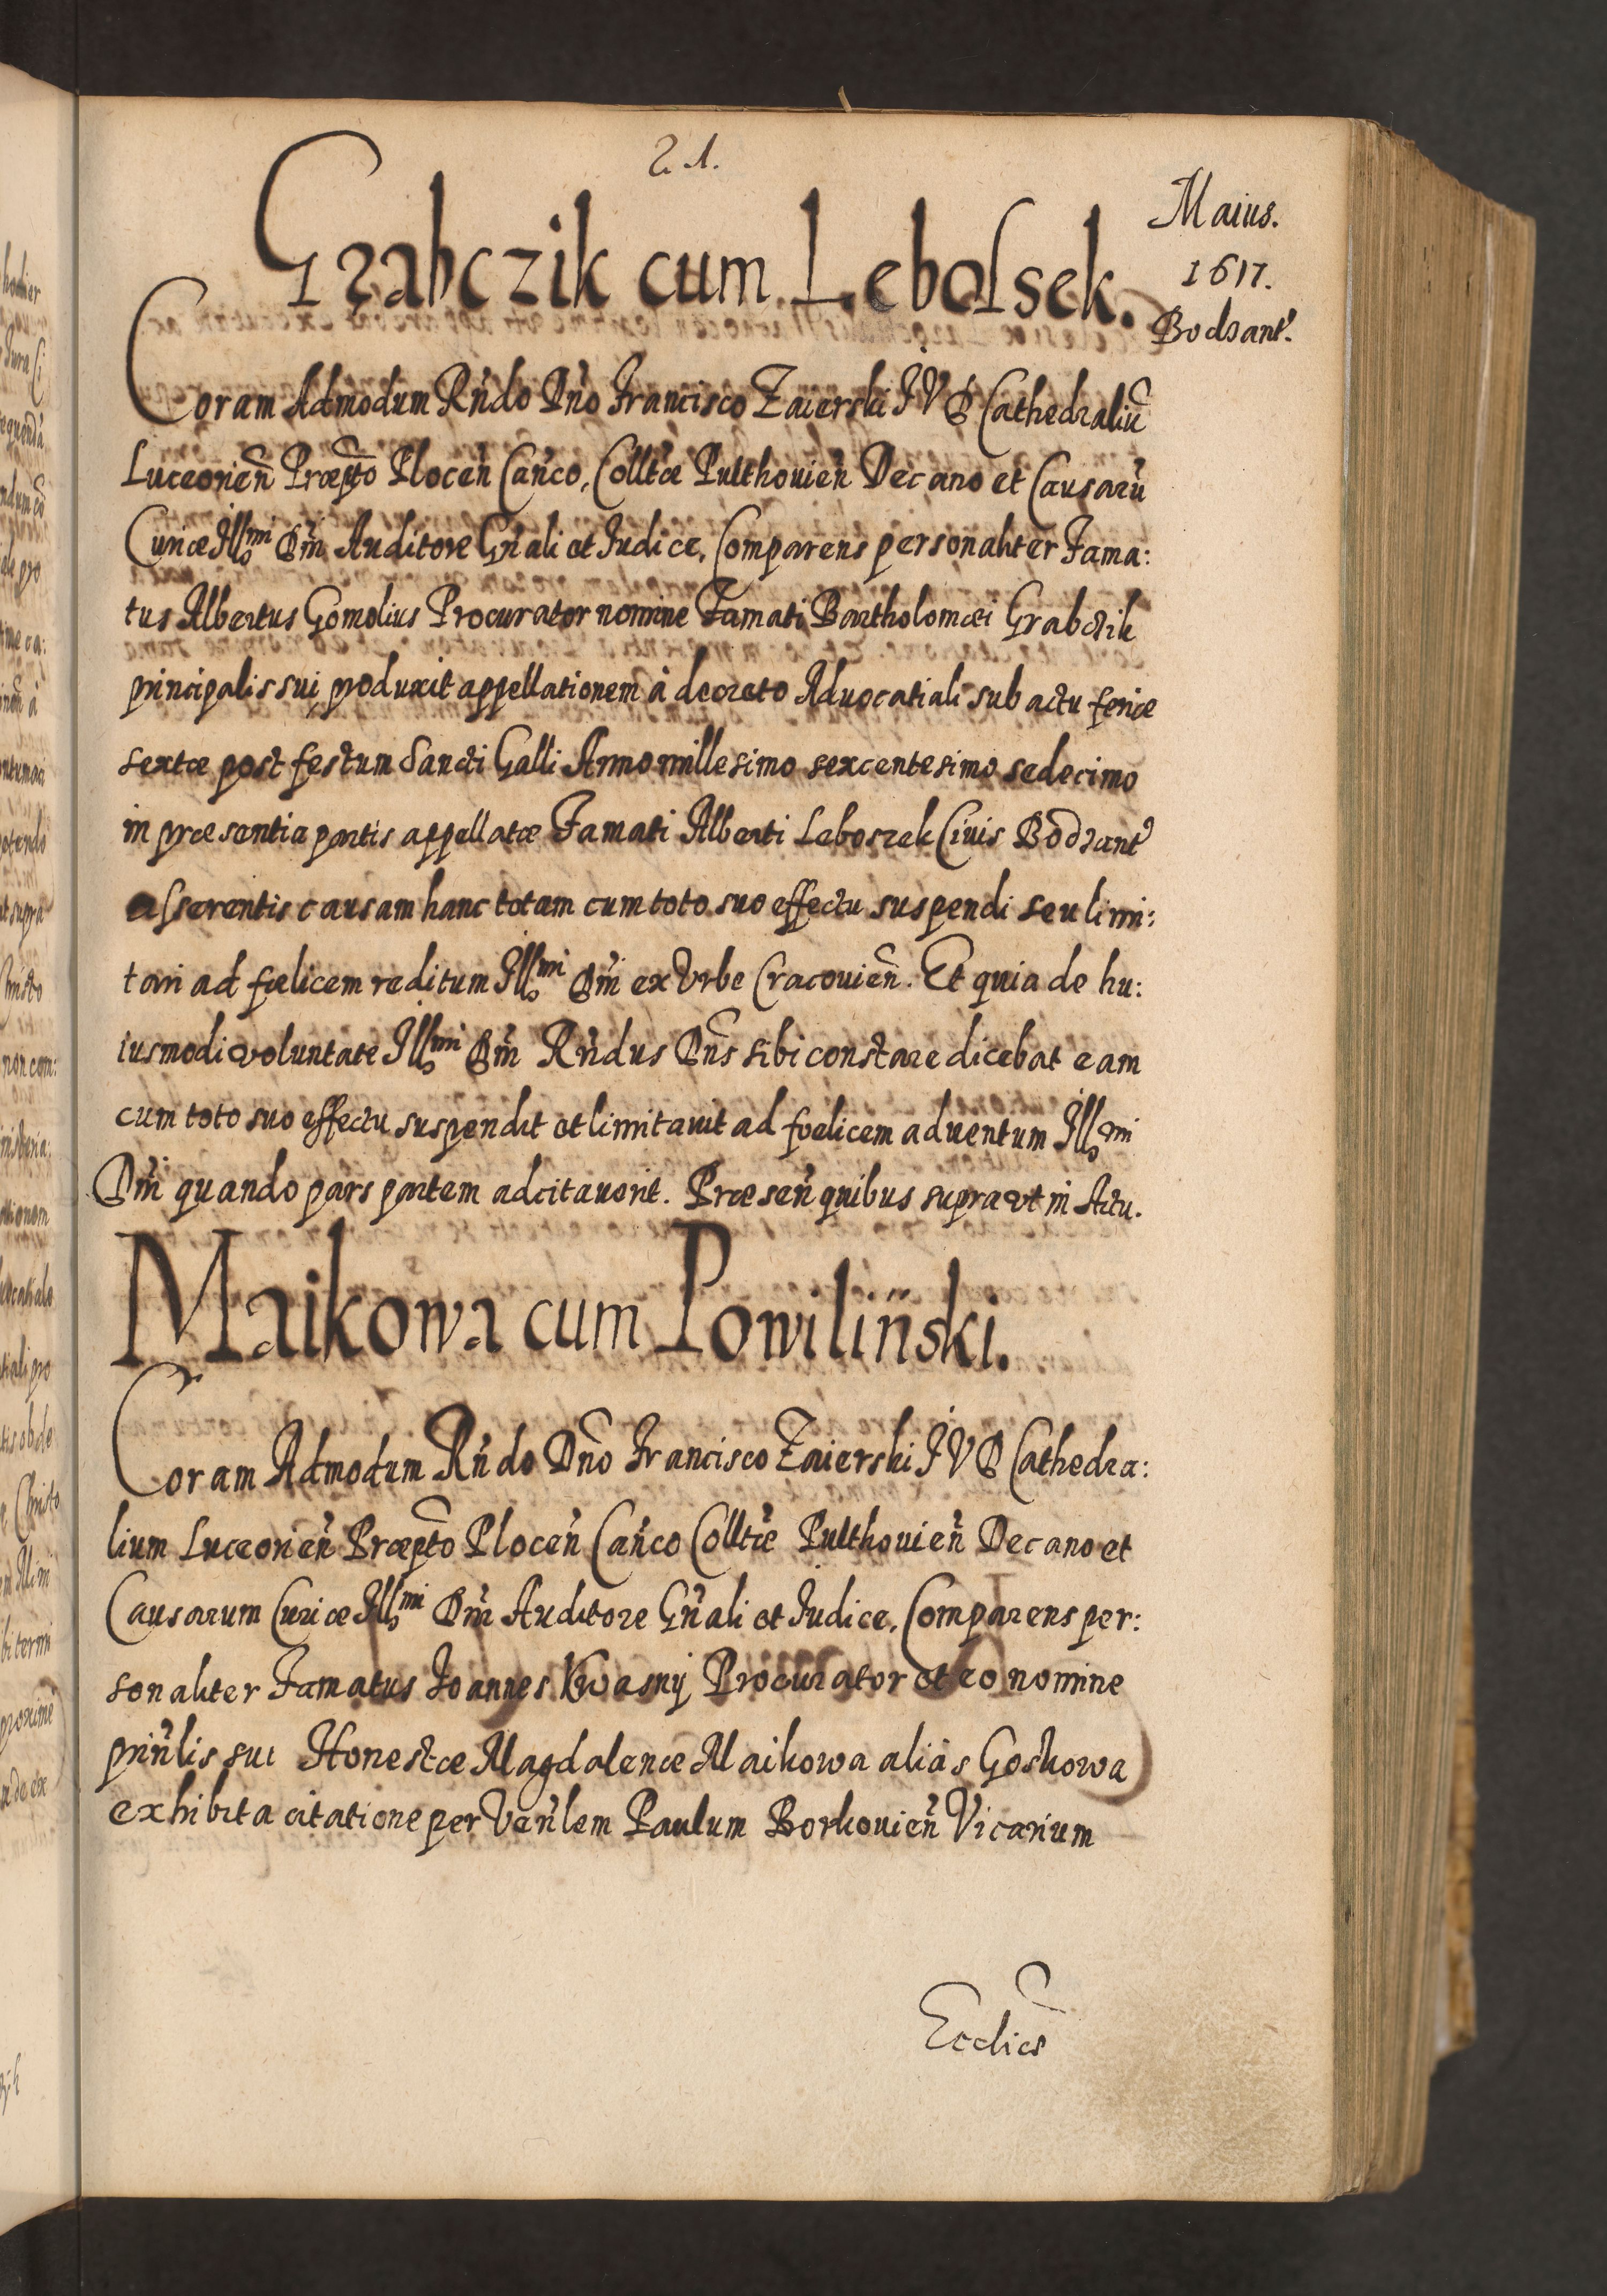 21.
Maius.
1617.
Bodzant.
Grabczik cum Lebolsek.
Coram Admodum Rńdo Dńo Francisco Zaierski JVD Cathedraliu
Luceorień Præpto Płoceń Cańco, Colltæ Pulthouień Decano et Causaru
Curiæ Illmi Dńi Auditore Gńali et Iudice, Comparens personaliter Fama:
tus Albertus Gomolius Procurator nomine Famati Bartholomæi Grabczik
principalis sui, produxit appellationem à decreto Aduocatiali sub actu feriæ
sextæ post festum Sancti Galli Anno millesimo sexcentesimo sedecimo
in præsentia partis appellatæ Famati Alberti Leboszek Ciuis Bodzant
asserentis causam hanc totam cum toto suo effectu suspendi seu limi:
tari ad fœlicem reditum Illmi Dńi ex Vrbe Cracouień. Et quia de hu:
iusmodi voluntate Illmi Dńi Rńdus Dńs sibi constare dicebat eam
cum toto suo effectu suspendit et limitauit ad fœlicem aduentum Illmi
Dńi quando pars partem adcitauerit. Præseń quibus supra vt in Actu.
Maikowa cum Powiliński.
Coram Admodum Rńdo Dńo Francisco Zaierski JVD Cathedra:
lium Luceorień Præpto Płoceń Cańco Colltæ Pulthouień Decano et
Causarum Curiæ Illmi Dńi Auditore Gńali et Iudice, Comparens per:
sonaliter Famatus Ioannes Kwasnÿ Procurator et eo nomine
prińlis sui Honestæ Magdalenæ Maikowa aliàs Goskowa
exhibita citatione per Veńlem Paulum Borkouień Vicarium
Ecclies